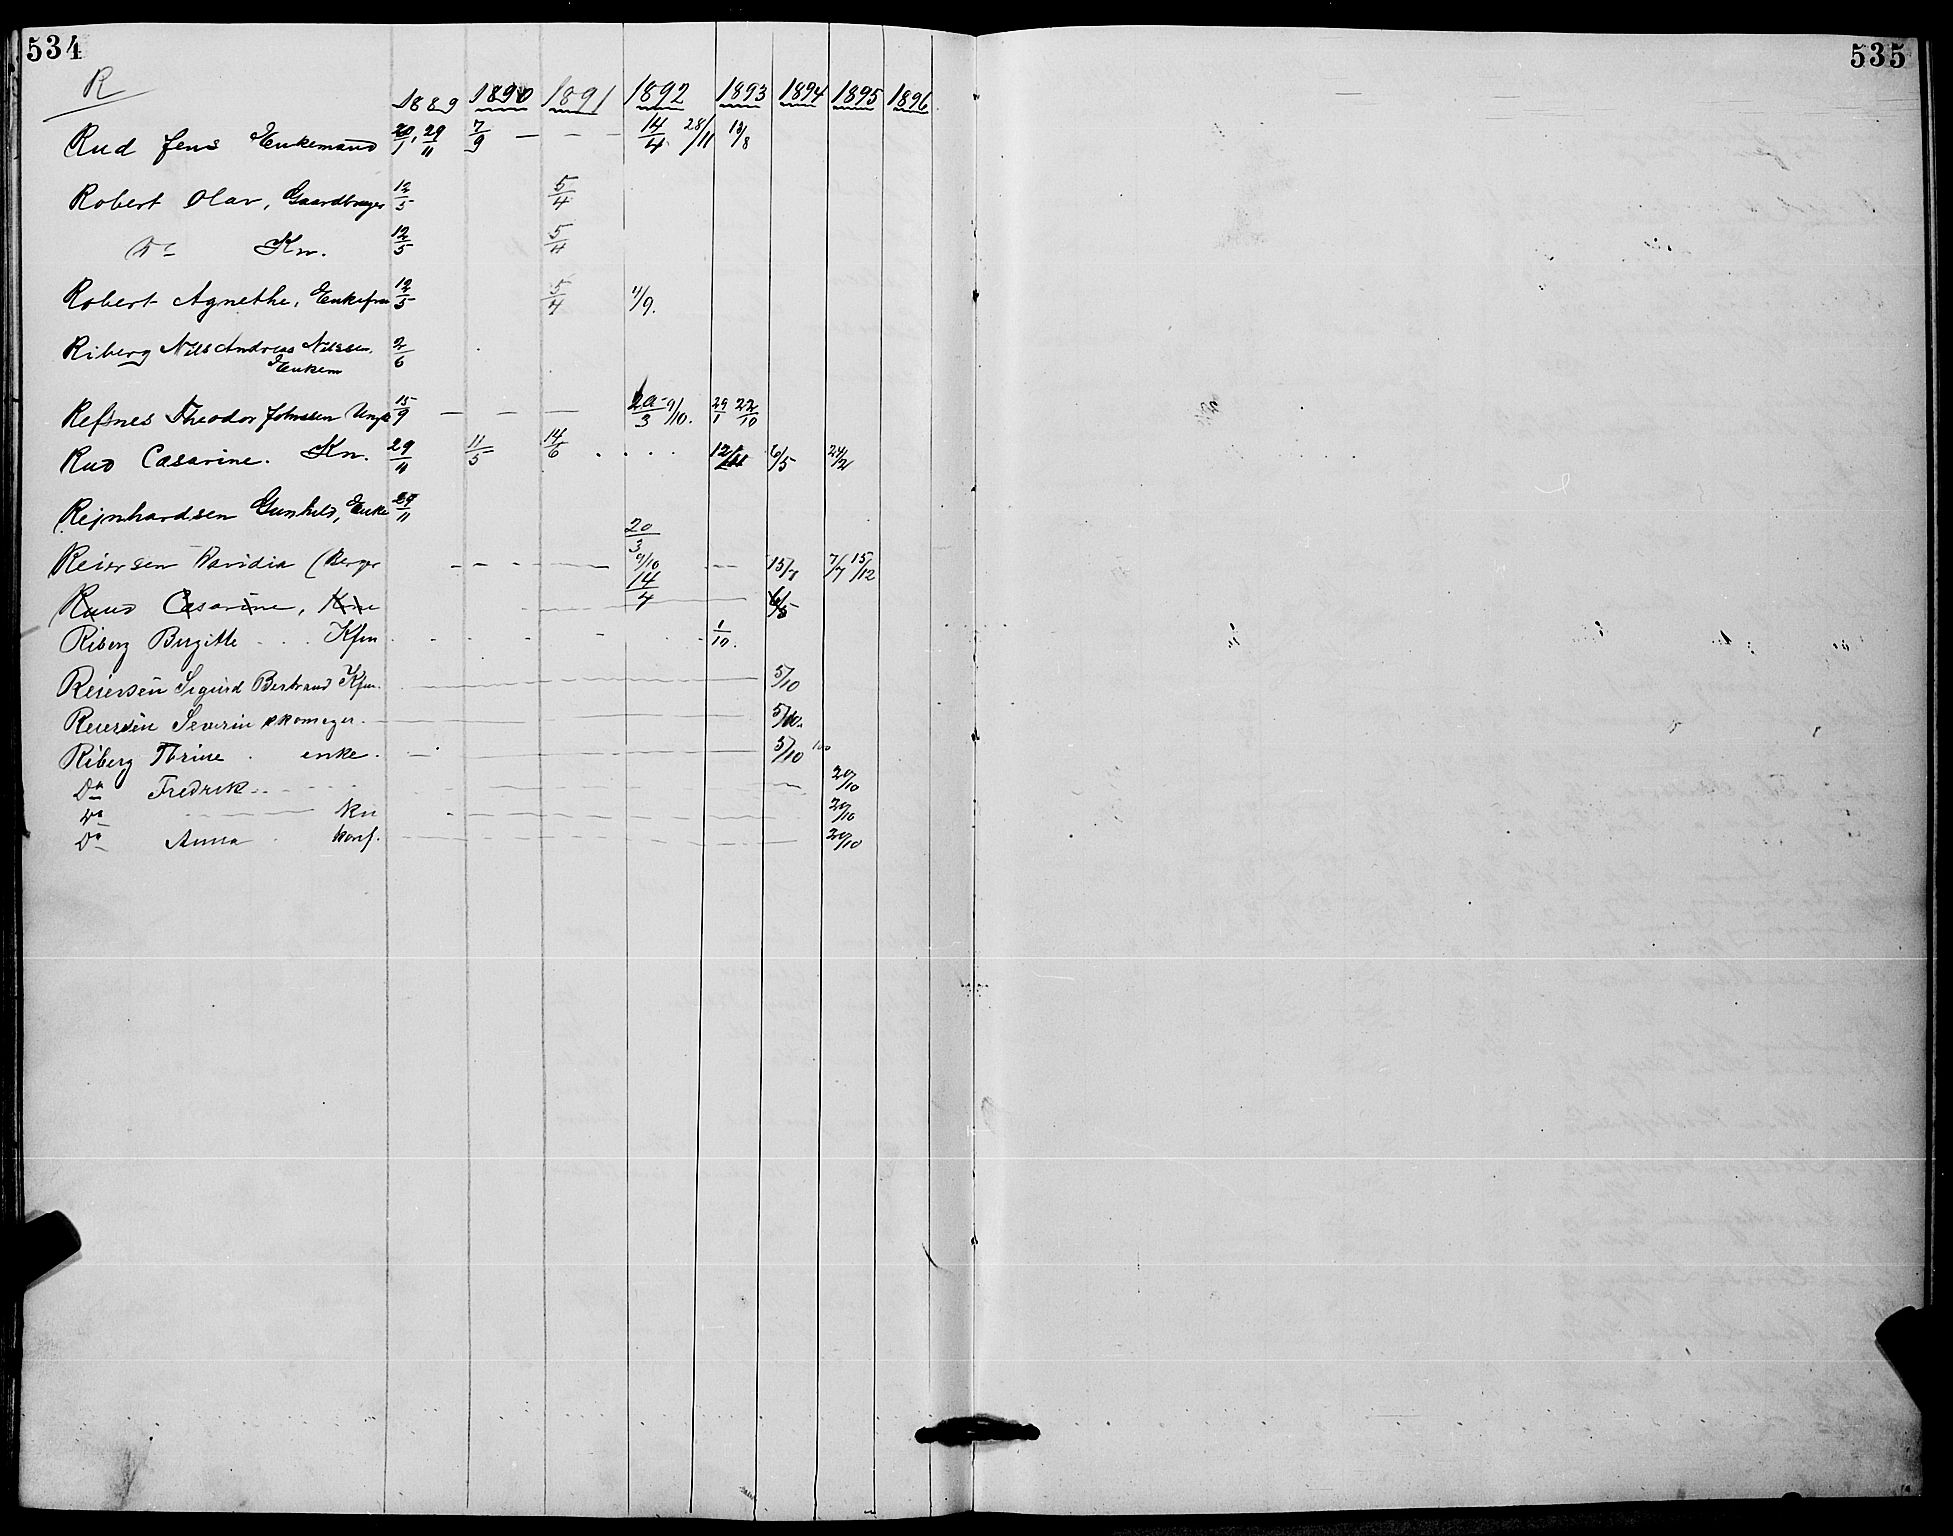 534
535
R
1889 1890 1891 1892 1893 1894 1895 1896
Rud Jens Enkemand 20/1, 29/11 7/9 — — — 14/4 28/11 13/8
Robert Olav, Gaardbruger 12/5 5/4
Do Kn. 12/5 5/4
Robert Agnethe, Enkefru 12/5 5/4 11/9.
Riberg Nils Andreas Nilssen, 2/6
Enkem
Refsnes Theodor Johnssen Ungk 15/9 — — — 20/3 9/10. 29/1 22/10
Rud Casarine. Kn. 29/11 11/5 14/6 . . . . 12/11 6/5 24/2
Rejnhardsen Gunhild, Enke 29/11
20/3
Reiersen Davidia (Berger — - - — — 9/10 — — 15/7 7/7 15/12
Ruud Casarine, Kne 14/4 6/5
Riberg Birgitte . . . Kfm 1/10.
Reiersen Sigurd Bertrand Kfm. 5/10
Reiersen Severin skomager. 5/10.
Riberg Thrine . enke. 5/10
Do Fredrik 20/10
Do kn 20/10
Do Anna konf. 20/10